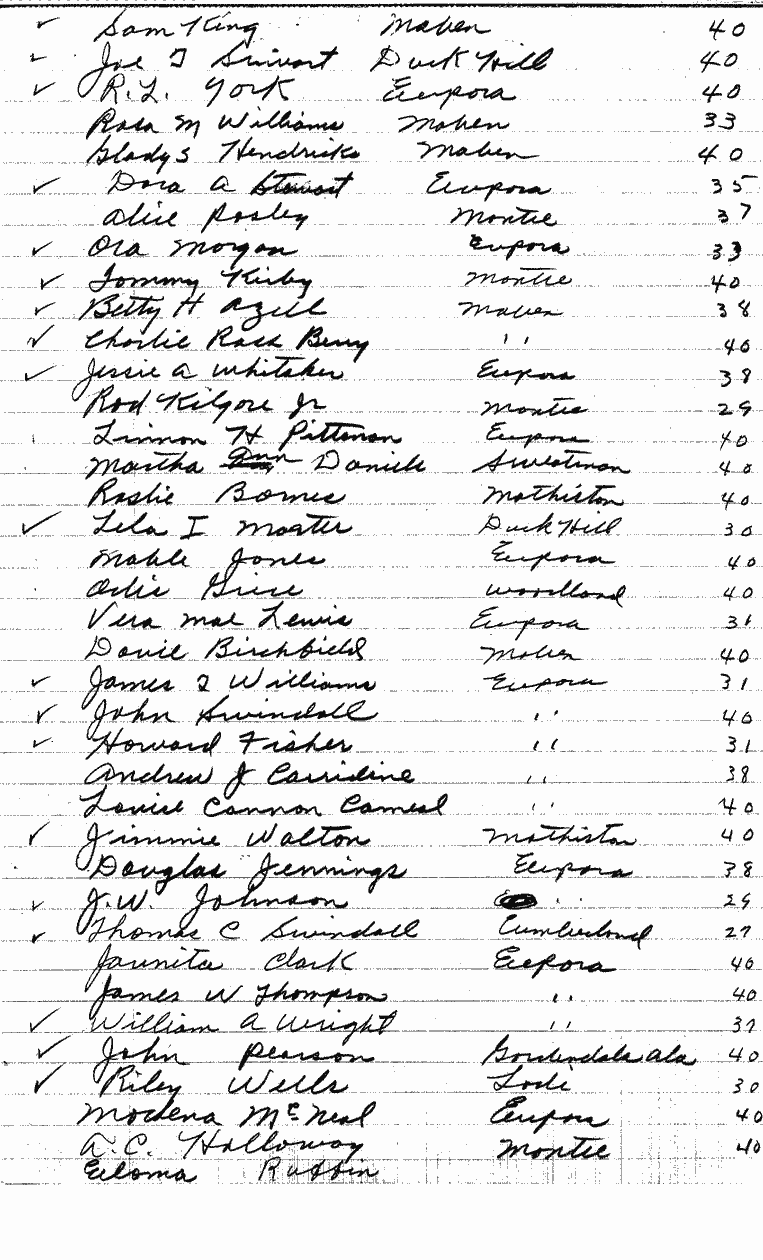 ✓ Sam King Maben 40
✓ Joe T Stewart Duck Hill 40
✓ R.L. York Eupora 40
Rosa M Williams Maben 33
Gladys Hendricks Maben 40
✓ Dora A Stewart Eupora 35
Alice Posley Montie 37
✓ Ora Morgan Eupora 33
✓ Tommy Kirby Montie 40
✓ Betty H Azell Maben 38
✓ Charlie Ross Berry '' 40
✓ Jessie A Whitaker Eupora 38
Rod Kilgore Jr Montie 29
Linnon H Pittman Eupora 40
Martha Ann Daniels Sweatman 40
Roslie Barnes Mathiston 40
✓ Lela I Duck Hill 30
Mable Jones Eupora 40
Odie Grice Woodland 40
Vera Mae Lewis Eupora 31
Davie Birchfield Maben 40
✓ James T Williams Eupora 31
✓ John Swindall '' 40
✓ Howard Fisher '' 31
Andrew J Carridine '' 38
Louise Cannon '' 40
✓ Jimmie Walton Mathiston 40
Douglas Jennings Eupora 38
✓ J.W. Johnson '' 29
✓ Thomas C Swindall Cumberland 27
Jaunita Clark Eupora 40
James W Thompson '' 40
✓ William A Wright '' 37
✓ John Pearson Ala 40
✓ Riley Wells Lodi 30
Modena McNeal Eupora 40
A.C. Holloway Montie 40